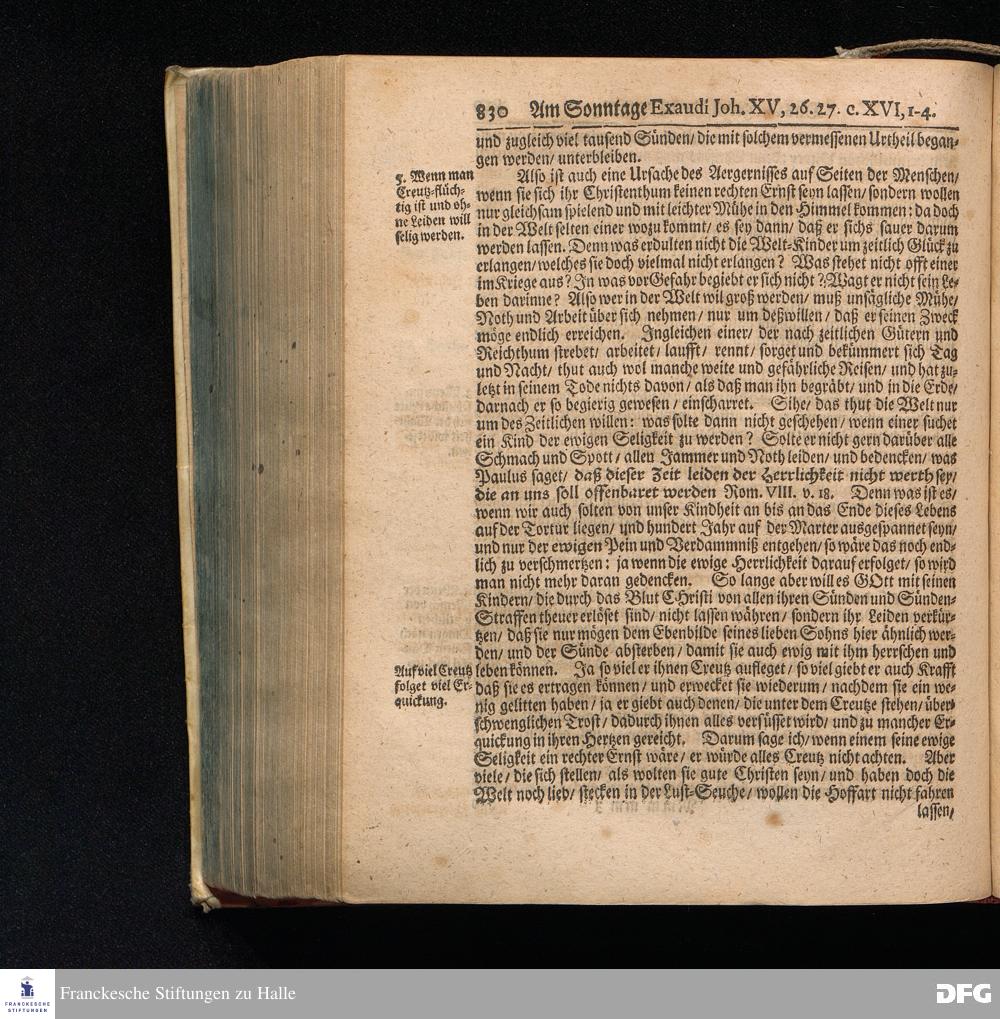 830 Am Sonntage Exaudi Joh. XV, 26. 27. c. XVI, 1-4.
und zugleich viel tausend Sünden/ die mit solchem vermessenen Urtheil began-
gen werden/ unterbleiben.
5. Wenn man
Creutz-flüch-
tig ist und oh-
ne Leiden will
selig werden.
Also ist auch eine Ursache des Aergernisses auf Seiten der Menschen/
wenn sie sich ihr Christenthum keinen rechten Ernst seyn lassen/ sondern wollen
nur gleichsam spielend und mit leichter Mühe in den Himmel kommen: da doch
in der Welt selten einer wozu kommt/ es sey dann/ daß er sichs sauer darum
werden lassen. Denn was erdulten nicht die Welt-Kinder um zeitlich Glück zu
erlangen/ welches sie doch vielmal nicht erlangen? Was stehet nicht offt einer
im Kriege aus? In was vor Gefahr begiebt er sich nicht? Wagt er nicht sein Le-
ben darinne? Also wer in der Welt wil groß werden/ muß unsägliche Mühe/
Noth und Arbeit über sich nehmen/ nur um deßwillen/ daß er seinen Zweck
möge endlich erreichen. Ingleichen einer/ der nach zeitlichen Gütern und
Reichthum strebet/ arbeitet/ laufft/ rennt/ sorget und bekümmert sich Tag
und Nacht/ thut auch wol manche weite und gefährliche Reisen/ und hat zu-
letzt in seinem Tode nichts davon/ als daß man ihn begräbt/ und in die Erde/
darnach er so begierig gewesen/ einscharret. Sihe/ das thut die Welt nur
um des Zeitlichen willen: was solte dann nicht geschehen/ wenn einer suchet
ein Kind der ewigen Seligkeit zu werden? Solte er nicht gern darüber alle
Schmach und Spott/ allen Jammer und Noth leiden/ und bedencken/ was
Paulus saget/ daß dieser Zeit leiden der Herrlichkeit nicht werth sey/
die an uns soll offenbaret werden Rom. VIII. v. 18. Denn was ist es/
wenn wir auch solten von unser Kindheit an bis an das Ende dieses Lebens
auf der Tortur liegen/ und hundert Jahr auf der Marter ausgespannet seyn/
und nur der ewigen Pein und Verdammniß entgehen/ so wäre das noch end-
lich zu verschmertzen: ja wenn die ewige Herrlichkeit darauf erfolget/ so wird
man nicht mehr daran gedencken. So lange aber will es GOtt mit seinen
Kindern/ die durch das Blut CHristi von allen ihren Sünden und Sünden-
Straffen theuer erlöset sind/ nicht lassen währen/ sondern ihr Leiden verkür-
tzen/ daß sie nur mögen dem Ebenbilde seines lieben Sohns hier ähnlich wer-
den/ und der Sünde absterben/ damit sie auch ewig mit ihm herrschen und
Auf viel Creutz
folget viel Er-
quickung.
leben können. Ja so viel er ihnen Creutz aufleget/ so viel giebt er auch Krafft
daß sie es ertragen können/ und erwecket sie wiederum/ nachdem sie ein we-
nig gelitten haben/ ja er giebt auch denen/ die unter dem Creutze stehen/ über-
schwenglichen Trost/ dadurch ihnen alles versüsset wird/ und zu mancher Er-
quickung in ihren Hertzen gereicht. Darum sage ich/ wenn einem seine ewige
Seligkeit ein rechter Ernst wäre/ er würde alles Creutz nicht achten. Aber
viele/ die sich stellen/ als wolten sie gute Christen seyn/ und haben doch die
Welt noch lieb/ stecken in der Lust-Seuche/ wollen die Hoffart nicht fahren
lassen/
FRANCKESCHE
STIFTUNGEN
Franckesche Stiftungen zu Halle
DFG